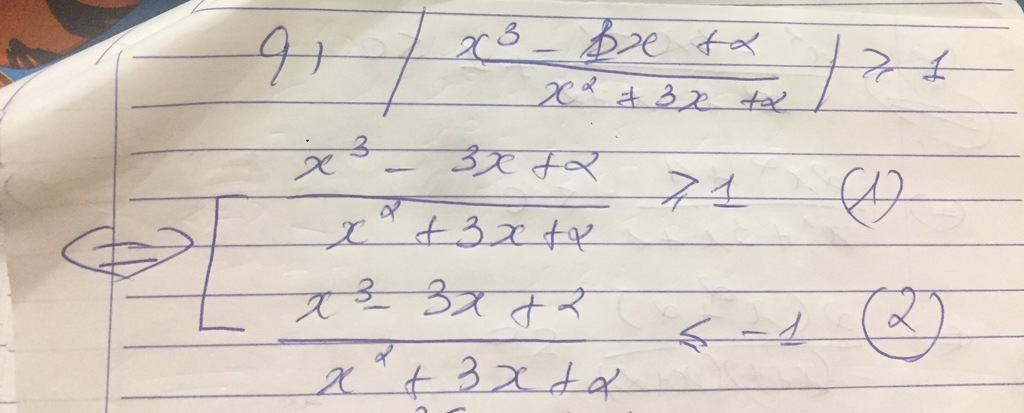 9, | x³ - 3x + 2 / x² + 3x + 2 | ≥ 1
⇔ [ x³ - 3x + 2 / x² + 3x + 2 ≥ 1 (1)
x³ - 3x + 2 / x² + 3x + 2 ≤ -1 (2)